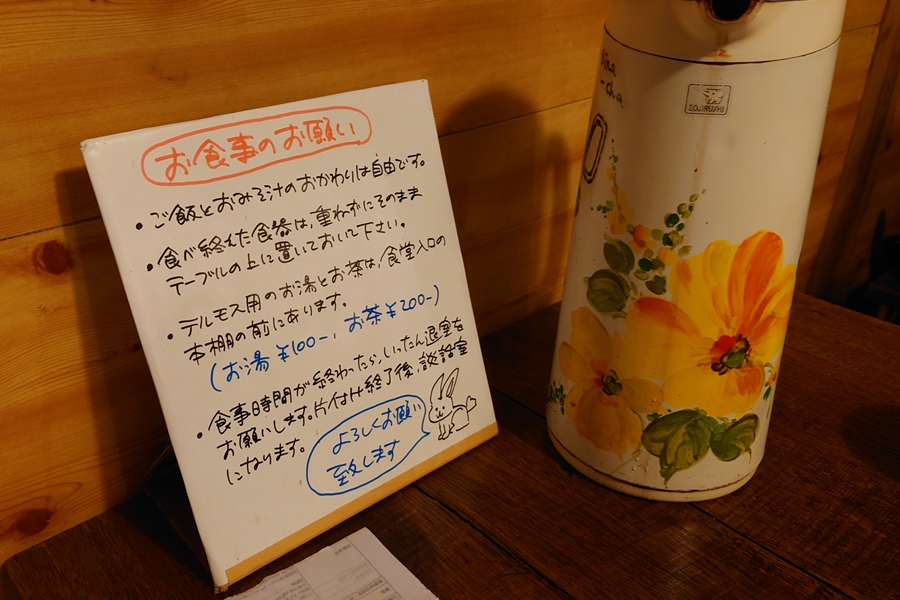 お食事のお願い
・ご飯とおみそ汁のおかわりは自由です。
・食べ終えた食器は、重ねずにそのまま
テーブルの上に置いておいて下さい。
・テルモス用のお湯とお茶は、食堂入口の
本棚の前にあります。
(お湯￥100-、お茶￥200-)
・食事時間が終わったら、いったん退室を
お願いします。片付け終了後、談話室
になります。
よろしくお願い
致します
ZOJIRUSHI